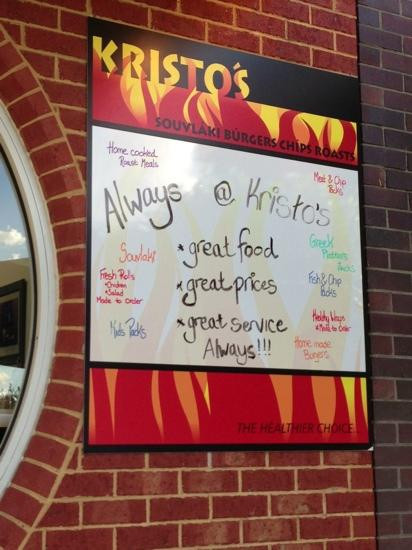 KRISTO'S
SOUVLAKI BURGERS CHIPS ROASTS
Home cooked
Roast Meals
Meat & Chip
Packs
Always @ Kristo's
Souvlaki
* great food
Greek
Platters
Packs
Fresh Rolls
• Chicken
• Salad
Made to Order
* great prices
Fish & Chip
Packs
Kids Packs
* great service
Always!!!
Healthy Wraps
• Made to Order
Home made
Burgers
THE HEALTHIER CHOICE...